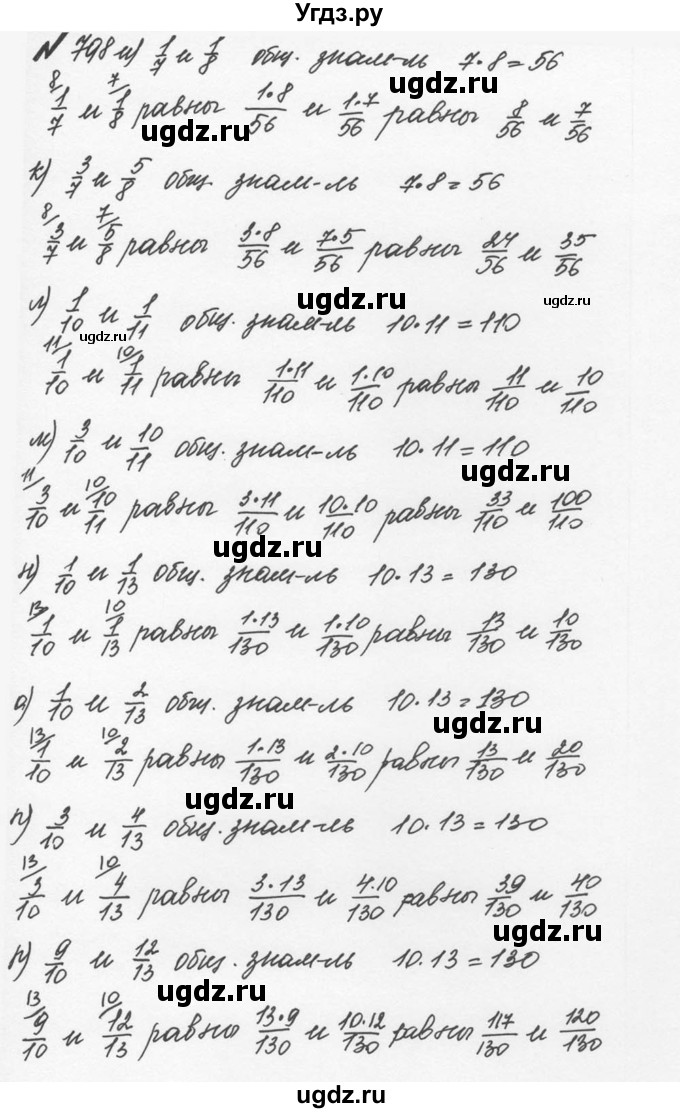 Угдз.ру
N 798 и) 1/7 и 1/8 общ. знам-ль 7·8=56
8/ 1/7 и 7/ 1/8 равны 1·8/56 и 1·7/56 равны 8/56 и 7/56
ugdz.ru
к) 3/7 и 5/8 общ. знам-ль 7·8=56
ugdz.ru
8/ 3/7 и 7/ 5/8 равны 3·8/56 и 7·5/56 равны 24/56 и 35/56
ugdz.ru ugdz.ru
л) 1/10 и 1/11 общ. знам-ль 10·11=110
ugdz.ru
11/ 1/10 и 10/ 1/11 равны 1·11/110 и 1·10/110 равны 11/110 и 10/110
м) 3/10 и 10/11 общ. знам-ль 10·11=110
ugdz.ru
11/ 3/10 и 10/ 10/11 равны 3·11/110 и 10·10/110 равны 33/110 и 100/110
ugdz.ru
н) 1/10 и 1/13 общ. знам-ль 10·13=130
13/ 1/10 и 10/ 1/13 равны 1·13/130 и 1·10/130 равны 13/130 и 10/130
о) 1/10 и 2/13 общ. знам-ль 10·13=130
ugdz.ru
13/ 1/10 и 10/ 2/13 равны 1·13/130 и 2·10/130 равны 13/130 и 20/130
ugdz.ru
п) 3/10 и 4/13 общ. знам-ль 10·13=130
13/ 3/10 и 10/ 4/13 равны 3·13/130 и 4·10/130 равны 39/130 и 40/130
ugdz.ru
р) 9/10 и 12/13 общ. знам-ль 10·13=130
ugdz.ru
13/ 9/10 и 10/ 12/13 равны 13·9/130 и 10·12/130 равны 117/130 и 120/130
ugdz.ru